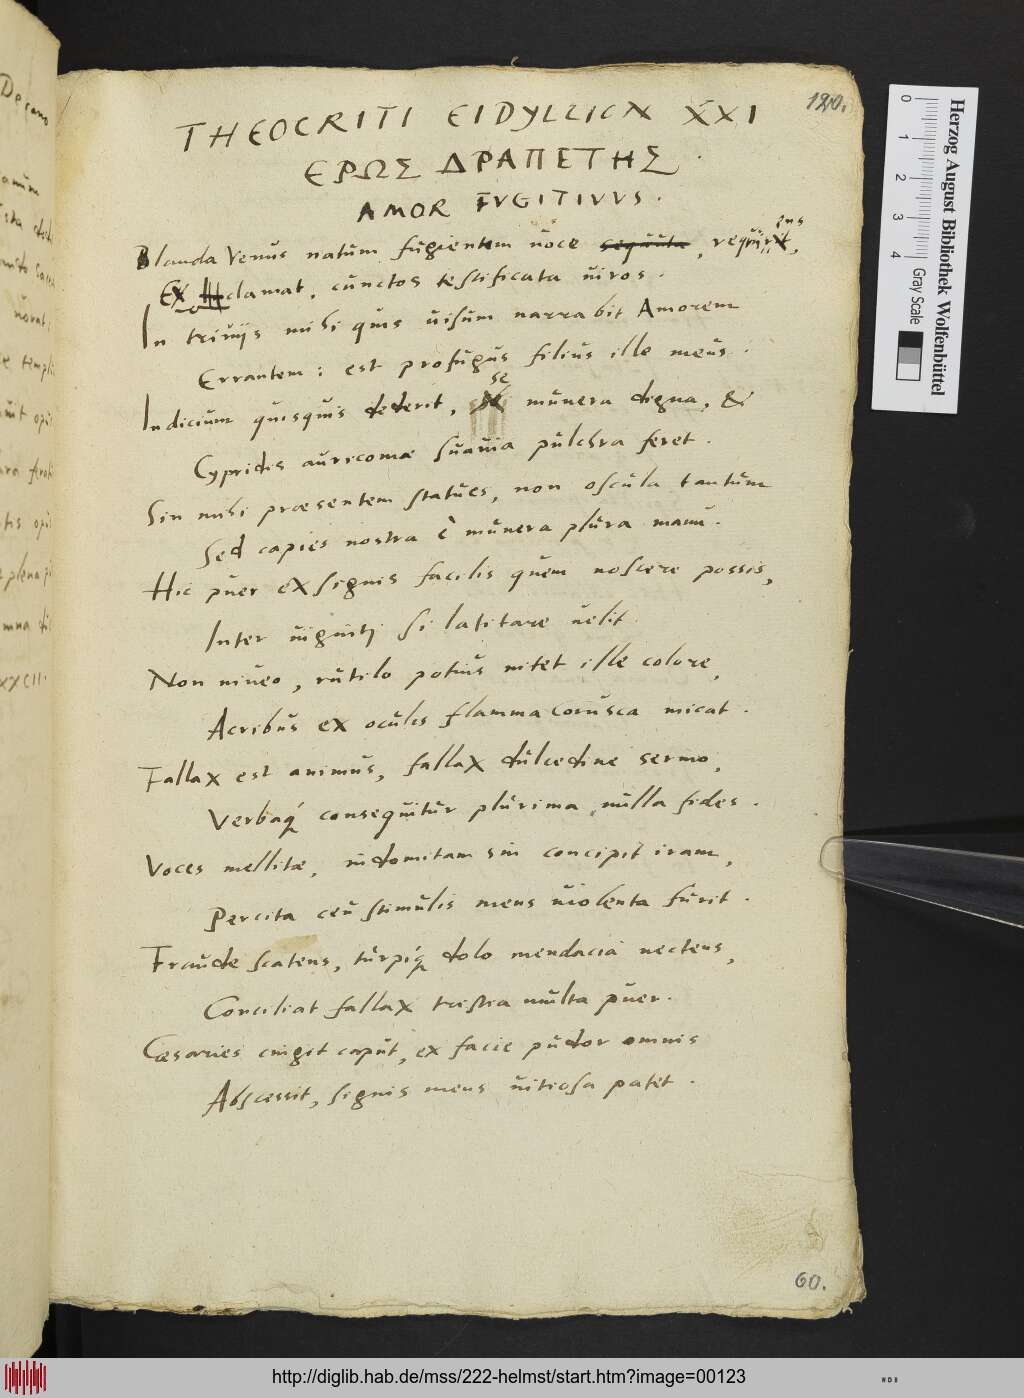 120.
THEOCRITI EIDYLLION XXI
ΕΡΩΣ ΔΡΑΠΕΤΗΣ.
AMOR FVGITIVVS.
Blanda Venus natum fugientem uoce sequuta, requirens,
Exclamat, cunctos testificata uiros.
In triuijs mihi quis uisum narrabit Amorem
Errantem: est profugus filius ille meus.
Indicium quisquis dederit, se munera digna, &
Cypridis auricomæ suauia pulchra feret.
Sin mihi præsentem statues, non oscula tantum
Sed capies nostra è munera plura manu.
Hic puer ex signis facilis quem noscere possis,
Inter uiginti si latitare uelit.
Non niueo, rutilo potius nitet ille colore,
Acribus ex oculis flamma corusca micat.
Fallax est animus, fallax dulcedine sermo,
Verbaq́ consequitur plurima, nulla fides.
Voces mellitæ, indomitam sin concipit iram,
Percita ceu stimulis mens uiolenta furit.
Fraude scatens, turpiq́ dolo mendacia nectens,
Conciliat fallax tristia multa puer.
Cæsaries cingit caput, ex facie pudor omnis
Abscessit, signis mens uitiosa patet.
60.
Herzog August Bibliothek Wolfenbüttel
0 1 2 3 4
Gray Scale
http://diglib.hab.de/mss/222-helmst/start.htm?image=00123